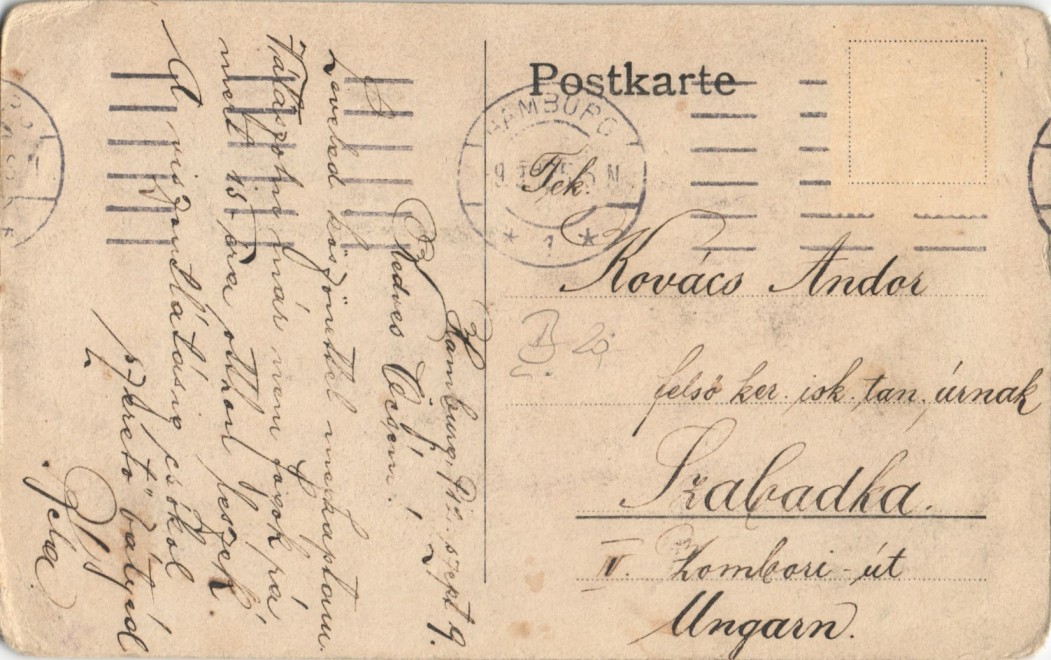 Hamburg, 912. szept 9.
Kedves Öcsém!
Leveled köszönettel megkaptam.
Válaszolni már nem fogok rá
mert 15-ére otthon leszek.
A viszontlátásig csókol
szerető bátyád
Béla
Postkarte
HAMBURG
* 1 *
Tek.
Kovács Andor
felső ker. isk. tan. úrnak
Szabadka.
II. Zombori-út
Ungarn.
B 20